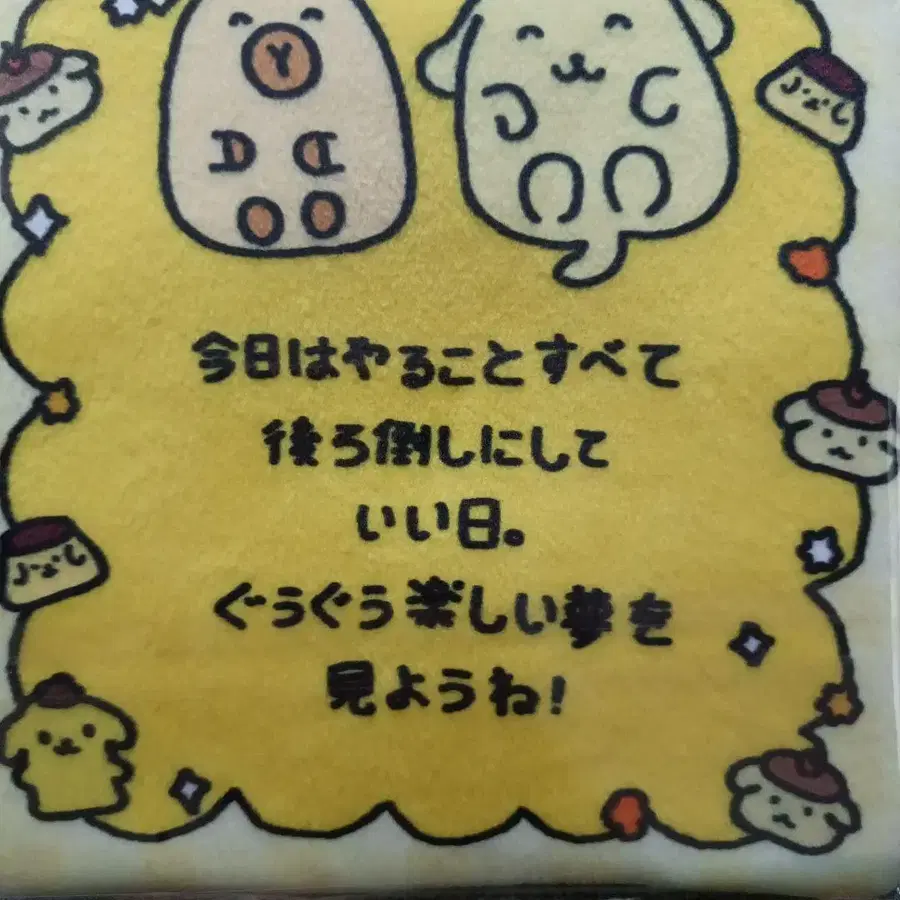 今日はやることすべて
後ろ倒しにして
いい日。
ぐうぐう楽しい夢を
見ようね!